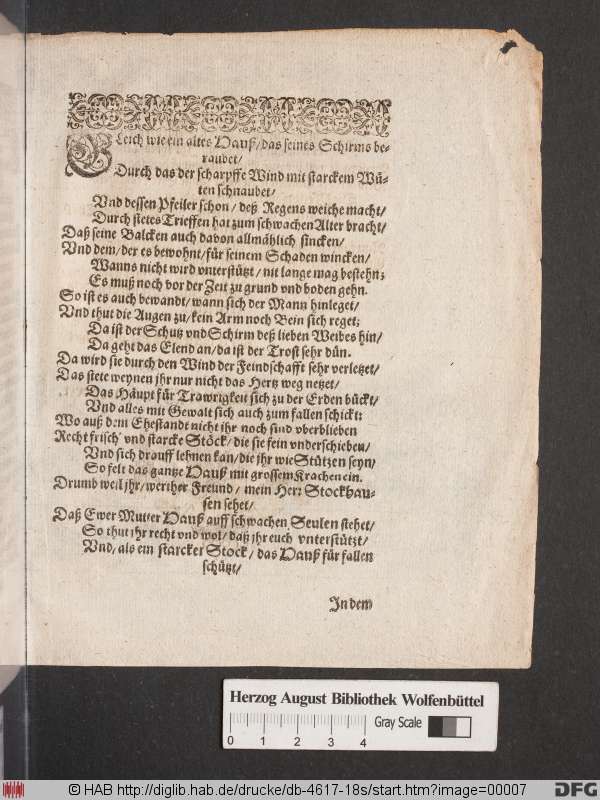 GLeich wie ein altes Hauß/ das seines Schirms be-
raubet/
Durch das der scharpffe Wind mit starckem Wü-
ten schnaubet/
Vnd dessen Pfeiler schon/ deß Regens weiche macht/
Durch stetes Trieffen hat zum schwachen Alter bracht/
Daß seine Balcken auch davon allmählich sincken/
Vnd dem/ der es bewohnt/ für seinem Schaden wincken/
Wanns nicht wird vnterstützt/ nit lange mag bestehn;
Es muß noch vor der Zeit zu grund vnd boden gehn.
So ist es auch bewandt/ wann sich der Mann hinleget/
Vnd thut die Augen zu/ kein Arm noch Bein sich reget;
Da ist der Schutz vnd Schirm deß lieben Weibes hin/
Da geht das Elend an/ da ist der Trost sehr dün.
Da wird sie durch den Wind der Feindschafft sehr verletzet/
Das stete weynen jhr nur nicht das Hertz weg netzet/
Das Häupt für Trawrigkeit sich zu der Erden bückt/
Vnd alles mit Gewalt sich auch zum fallen schickt:
Wo auß dem Ehestandt nicht jhr noch sind vberblieben
Recht frisch' vnd starcke Stöck/ die sie fein vnderschieben/
Vnd sich drauff lehnen kan/ die jhr wie Stützen seyn/
So felt das gantze Hauß mit grossem Krachen ein.
Drumb weil jhr/ werther Freund/ mein Herr Stockhau-
sen sehet/
Daß Ewer Mutter Hauß auff schwachen Seulen stehet/
So thut jhr recht vnd wol/ daß jhr euch vnterstützt/
Vnd/ als ein starcker Stock/ das Hauß für fallen
schützt/
In dem
Herzog August Bibliothek Wolfenbüttel
Gray Scale
0 1 2 3 4
© HAB http://diglib.hab.de/drucke/db-4617-18s/start.htm?image=00007
DFG